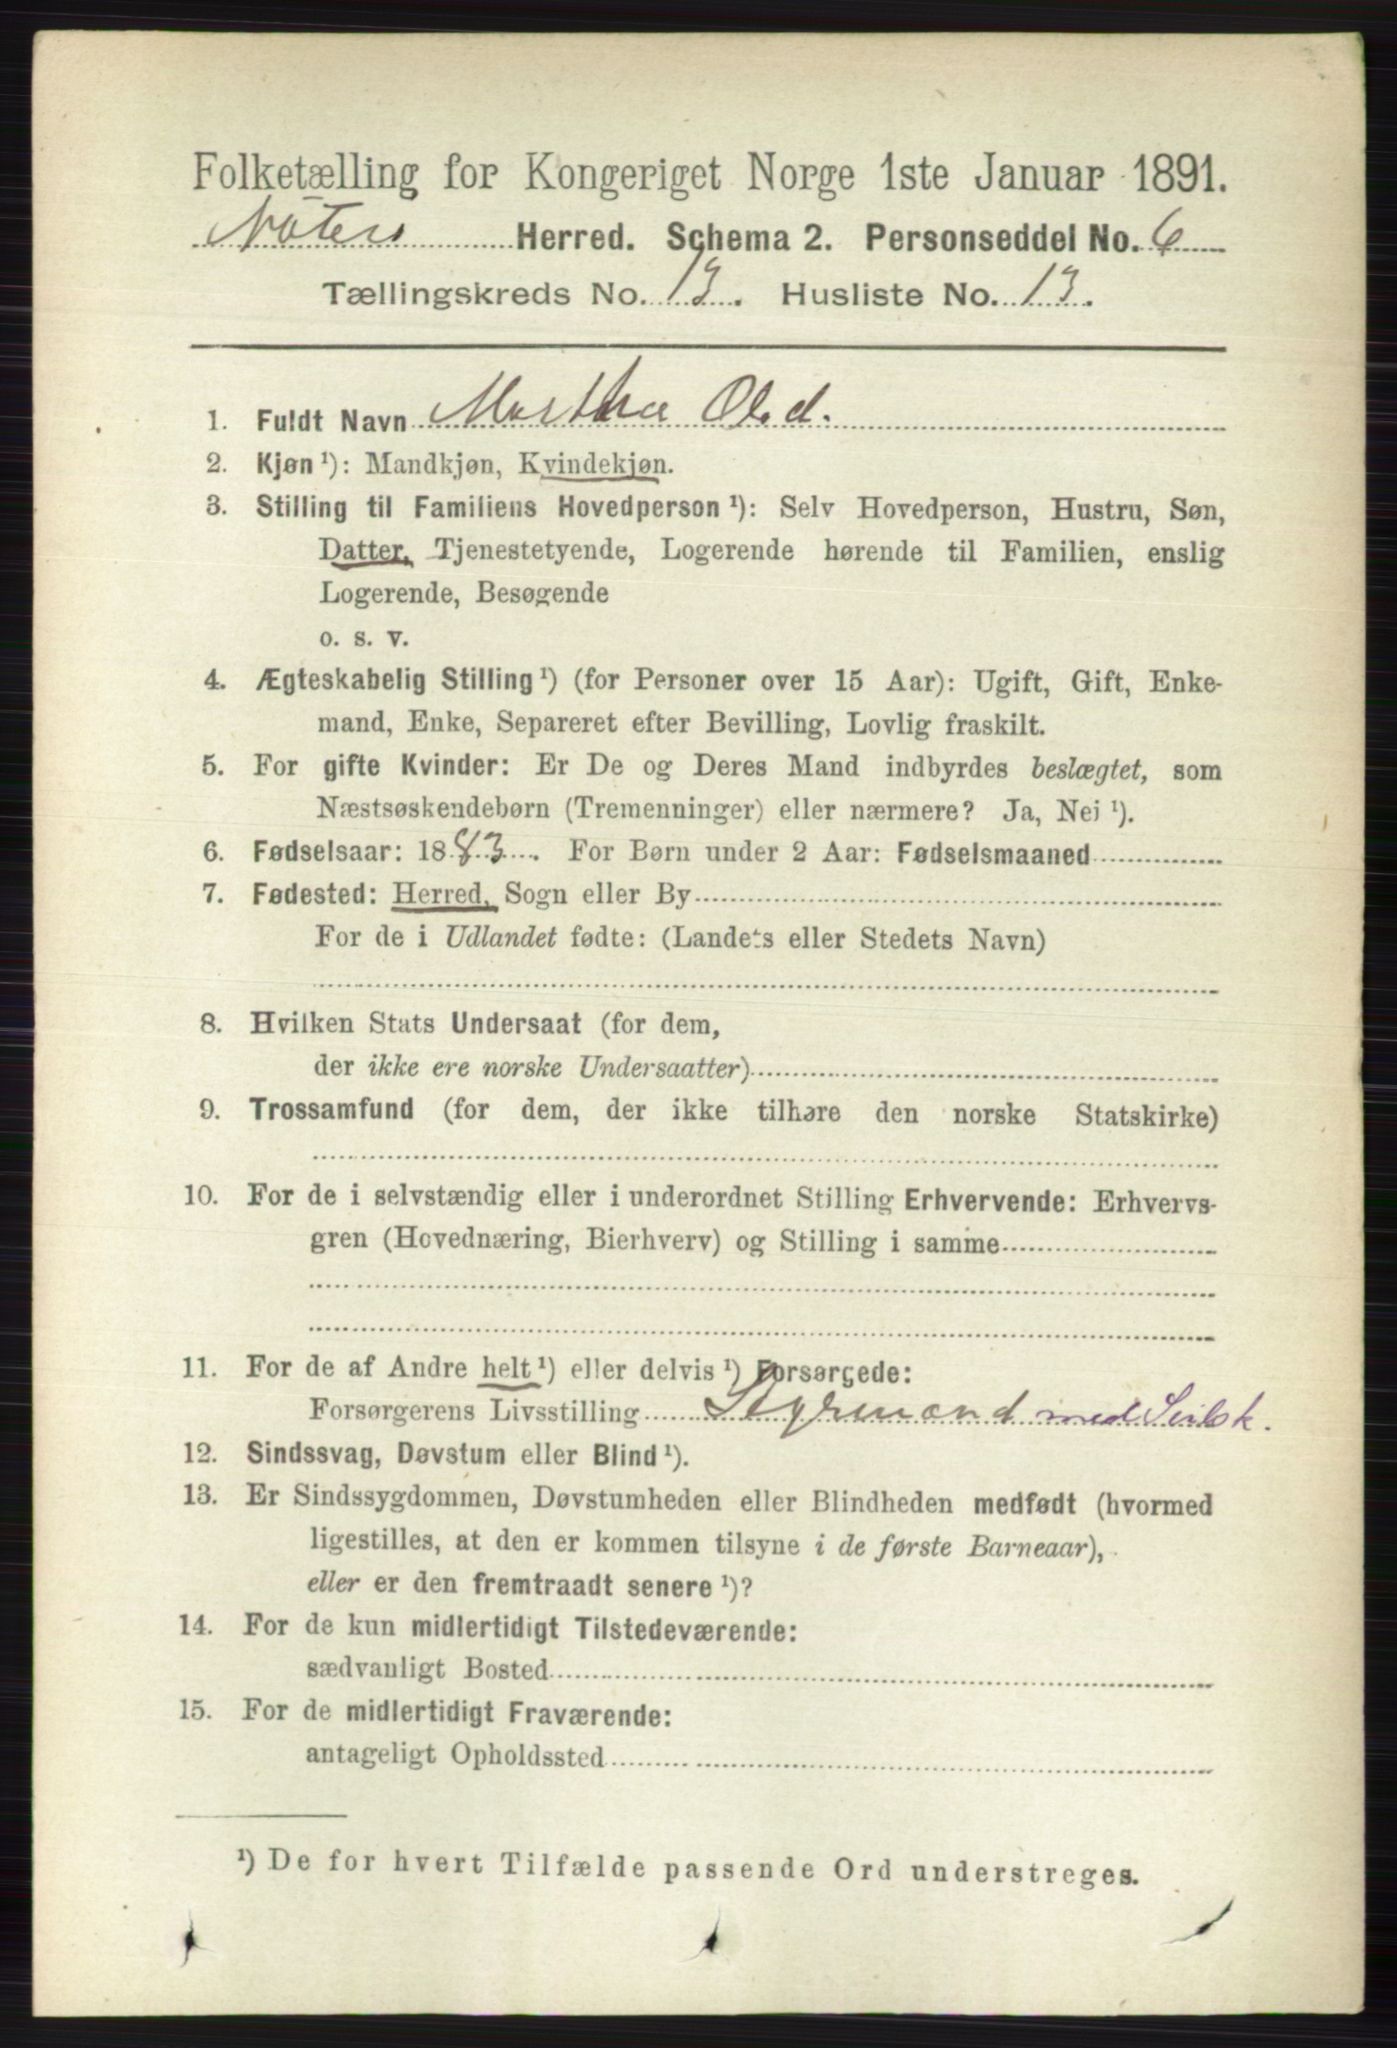 Folketælling for Kongeriget Norge 1ste Januar 1891.
Nøterø Herred. Schema 2. Personseddel No. 6
Tællingskreds No. 13. Husliste No. 13.
1. Fuldt Navn Marthea Ols.d.
2. Kjøn ¹): Mandkjøn, Kvindekjøn.
3. Stilling til Familiens Hovedperson ¹): Selv Hovedperson, Hustru, Søn,
Datter, Tjenestetyende, Logerende hørende til Familien, enslig
Logerende, Besøgende
o. s. v.
4. Ægteskabelig Stilling ¹) (for Personer over 15 Aar): Ugift, Gift, Enke-
mand, Enke, Separeret efter Bevilling, Lovlig fraskilt.
5. For gifte Kvinder: Er De og Deres Mand indbyrdes beslægtet, som
Næstsøskendebørn (Tremenninger) eller nærmere? Ja, Nei ¹).
6. Fødselsaar: 1883. For Børn under 2 Aar: Fødselsmaaned
7. Fødested: Herred, Sogn eller By
For de i Udlandet fødte: (Landets eller Stedets Navn)
8. Hvilken Stats Undersaat (for dem,
der ikke ere norske Undersaatter)
9. Trossamfund (for dem, der ikke tilhøre den norske Statskirke)
10. For de i selvstændig eller i underordnet Stilling Erhvervende: Erhvervs-
gren (Hovednæring, Bierhverv) og Stilling i samme
11. For de af Andre helt ¹) eller delvis ¹) Forsørgede:
Forsørgerens Livsstilling Styrmand med Seilsk.
12. Sindssvag, Døvstum eller Blind ¹).
13. Er Sindssygdommen, Døvstumheden eller Blindheden medfødt (hvormed
ligestilles, at den er kommen tilsyne i de første Barneaar),
eller er den fremtraadt senere ¹)?
14. For de kun midlertidigt Tilstedeværende:
sædvanligt Bosted
15. For de midlertidigt Fraværende:
antageligt Opholdssted
¹) De for hvert Tilfælde passende Ord understreges.